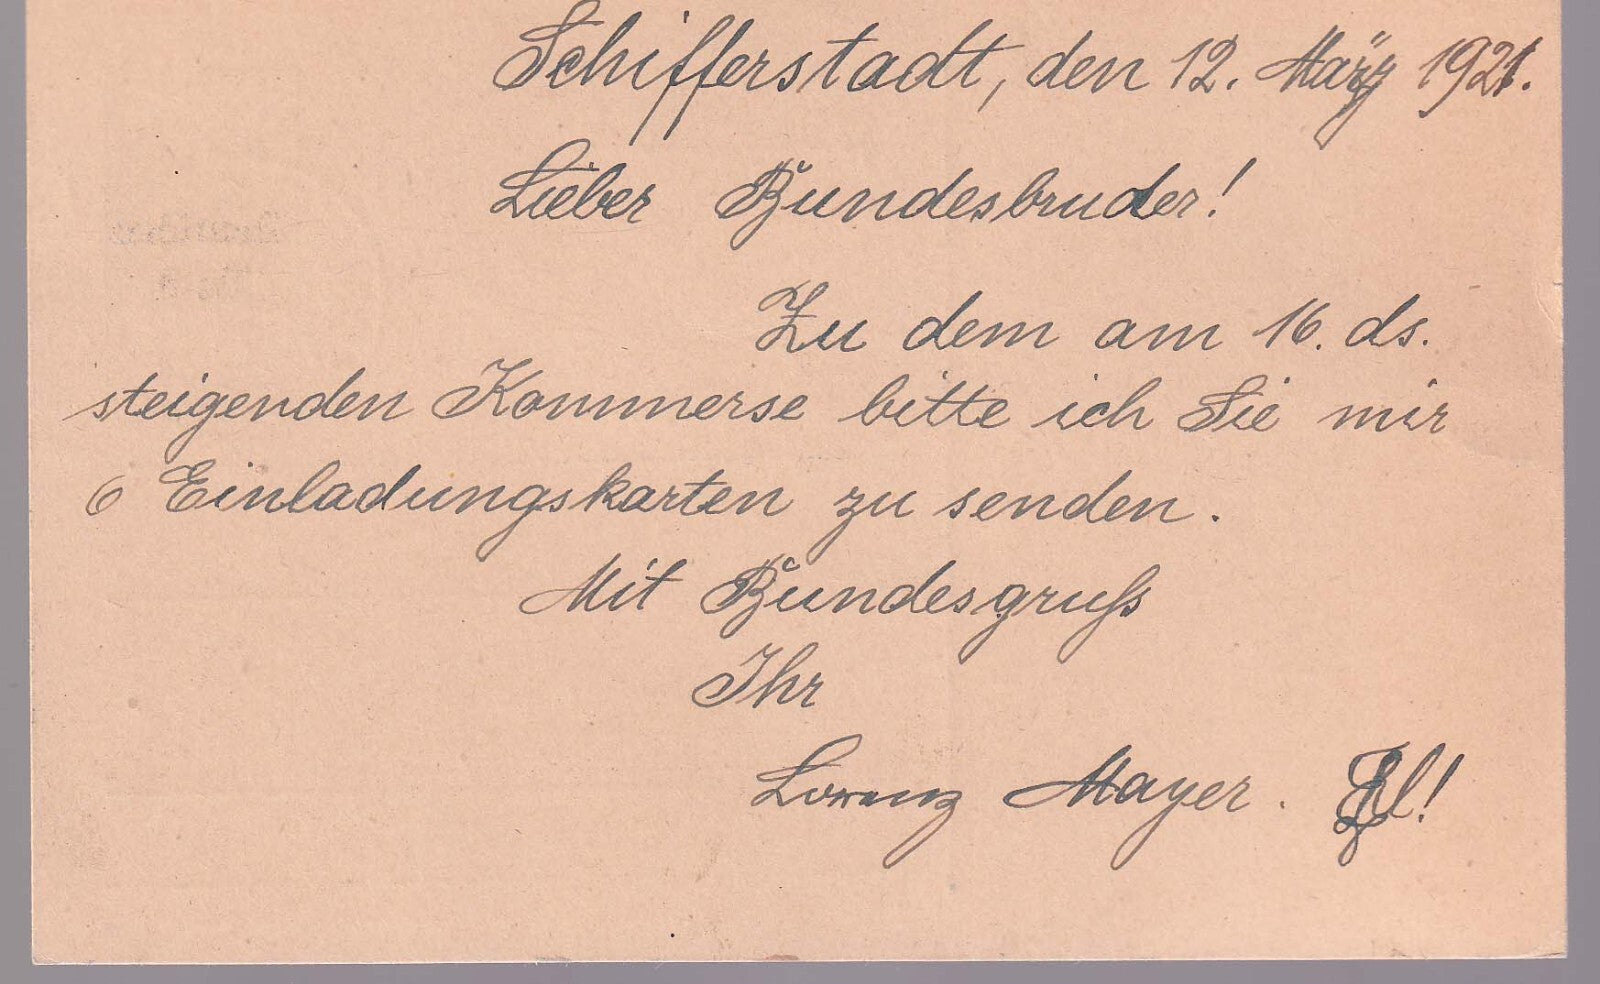 Schifferstadt, den 12. März 1921.
Lieber Bundesbruder!
Zu dem am 16. ds.
steigenden Kommerse bitte ich Sie mir
6 Einladungskarten zu senden.
Mit Bundesgruß
Ihr
Lorenz Mayer.